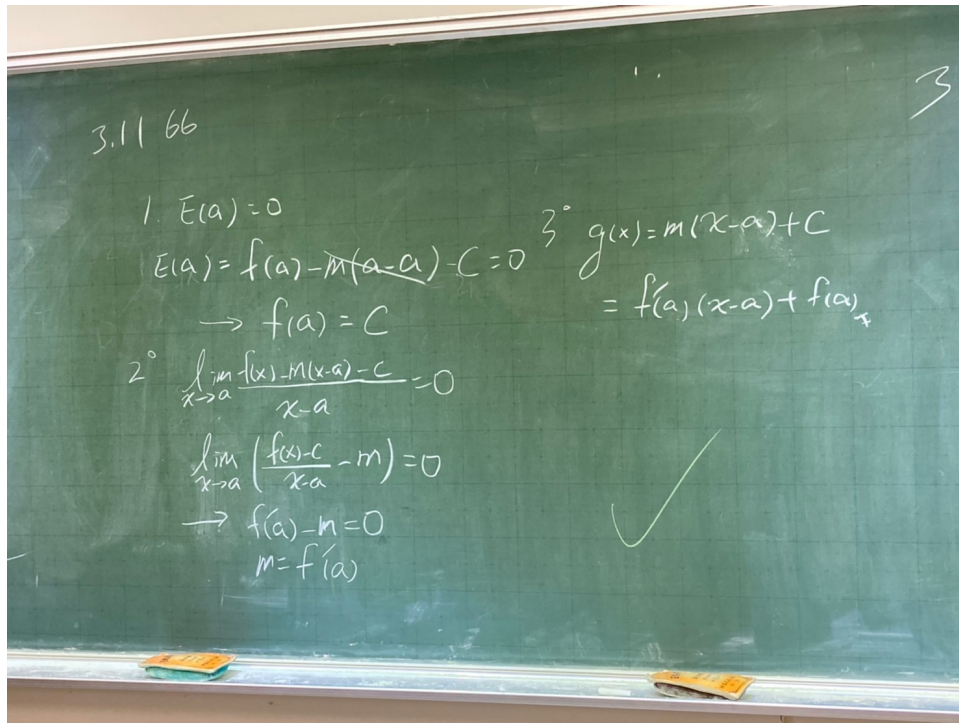 3
3.11 66
1. E(a)=0
E(a)=f(a)-m(a-a)-C=0
→ f(a)=C
2° lim x→a (f(x)-m(x-a)-C)/(x-a) =0
lim x→a ( (f(x)-C)/(x-a) -m)=0
→ f'(a)-m=0
m=f'(a)
3° g(x)=m(x-a)+C
= f'(a)(x-a)+f(a)